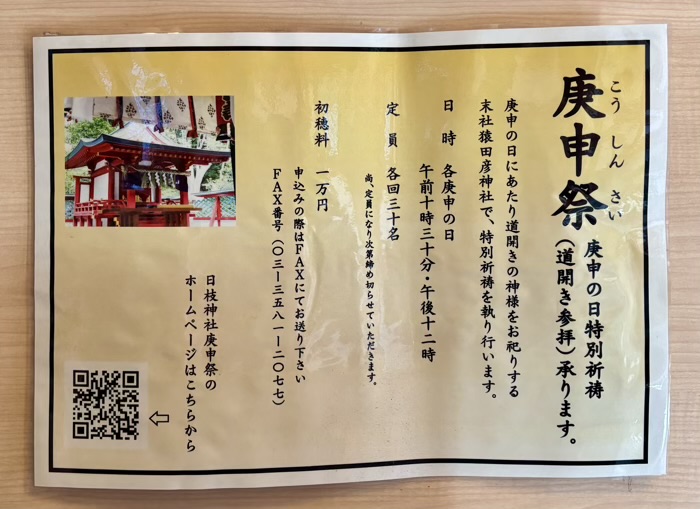 こうしんさい
庚申祭
庚申の日特別祈祷
（道開き参拝）承ります。
庚申の日にあたり道開きの神様をお祀りする
末社猿田彦神社で、特別祈祷を執り行います。
日時 各庚申の日
午前十時三十分・午後十二時
定員 各回三十名
尚、定員になり次第締め切らせていただきます。
初穂料 一万円
申込みの際はＦＡＸにてお送り下さい
ＦＡＸ番号（０３ー３５８１ー２０７７）
日枝神社庚申祭の
ホームページはこちらから